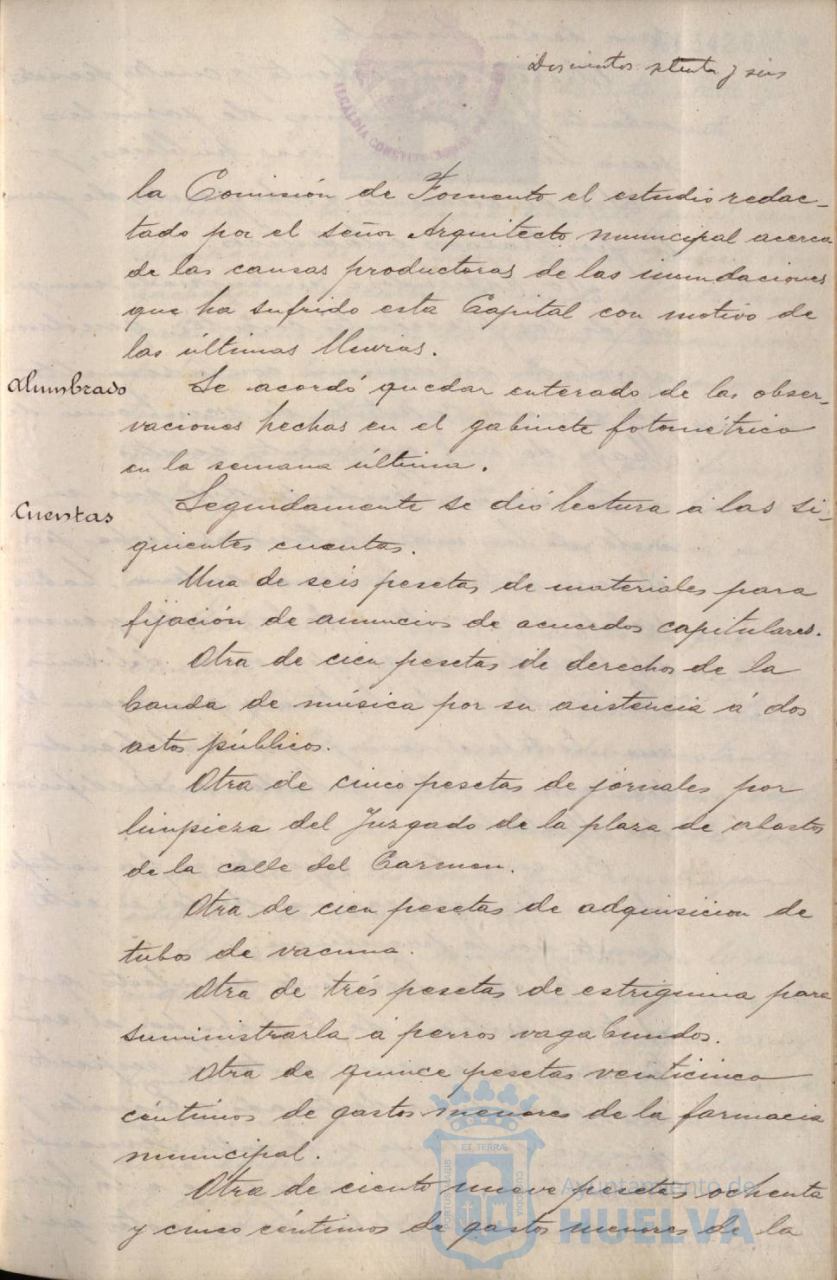 Doscientos setenta y seis
la Comisión de Fomento el estudio redac-
tado por el señor Arquitecto municipal acerca
de las causas productoras de las inundaciones
que ha sufrido esta Capital con motivo de
las últimas lluvias.
Alumbrado
Se acordó quedar enterado de las obser-
vaciones hechas en el gabinete fotométrico
en la semana última.
Cuentas
Seguidamente se dió lectura á las si-
guientes cuentas.
Una de seis pesetas de materiales para
fijación de anuncios de acuerdos capitulares.
Otra de cien pesetas de derechos de la
banda de música por su asistencia á dos
actos públicos.
Otra de cinco pesetas de jornales por
limpieza del Juzgado de la plaza de abastos
de la calle del Carmen.
Otra de cien pesetas de adquisicion de
tubos de vacuna.
Otra de trés pesetas de estriguina para
suministrarla á perros vagabundos.
Otra de quince pesetas veinticinco
céntimos de gastos menores de la farmacia
municipal.
Otra de ciento nueve pesetas ochenta
y cinco céntimos de gastos menores de la
Ayuntamiento de
HUELVA